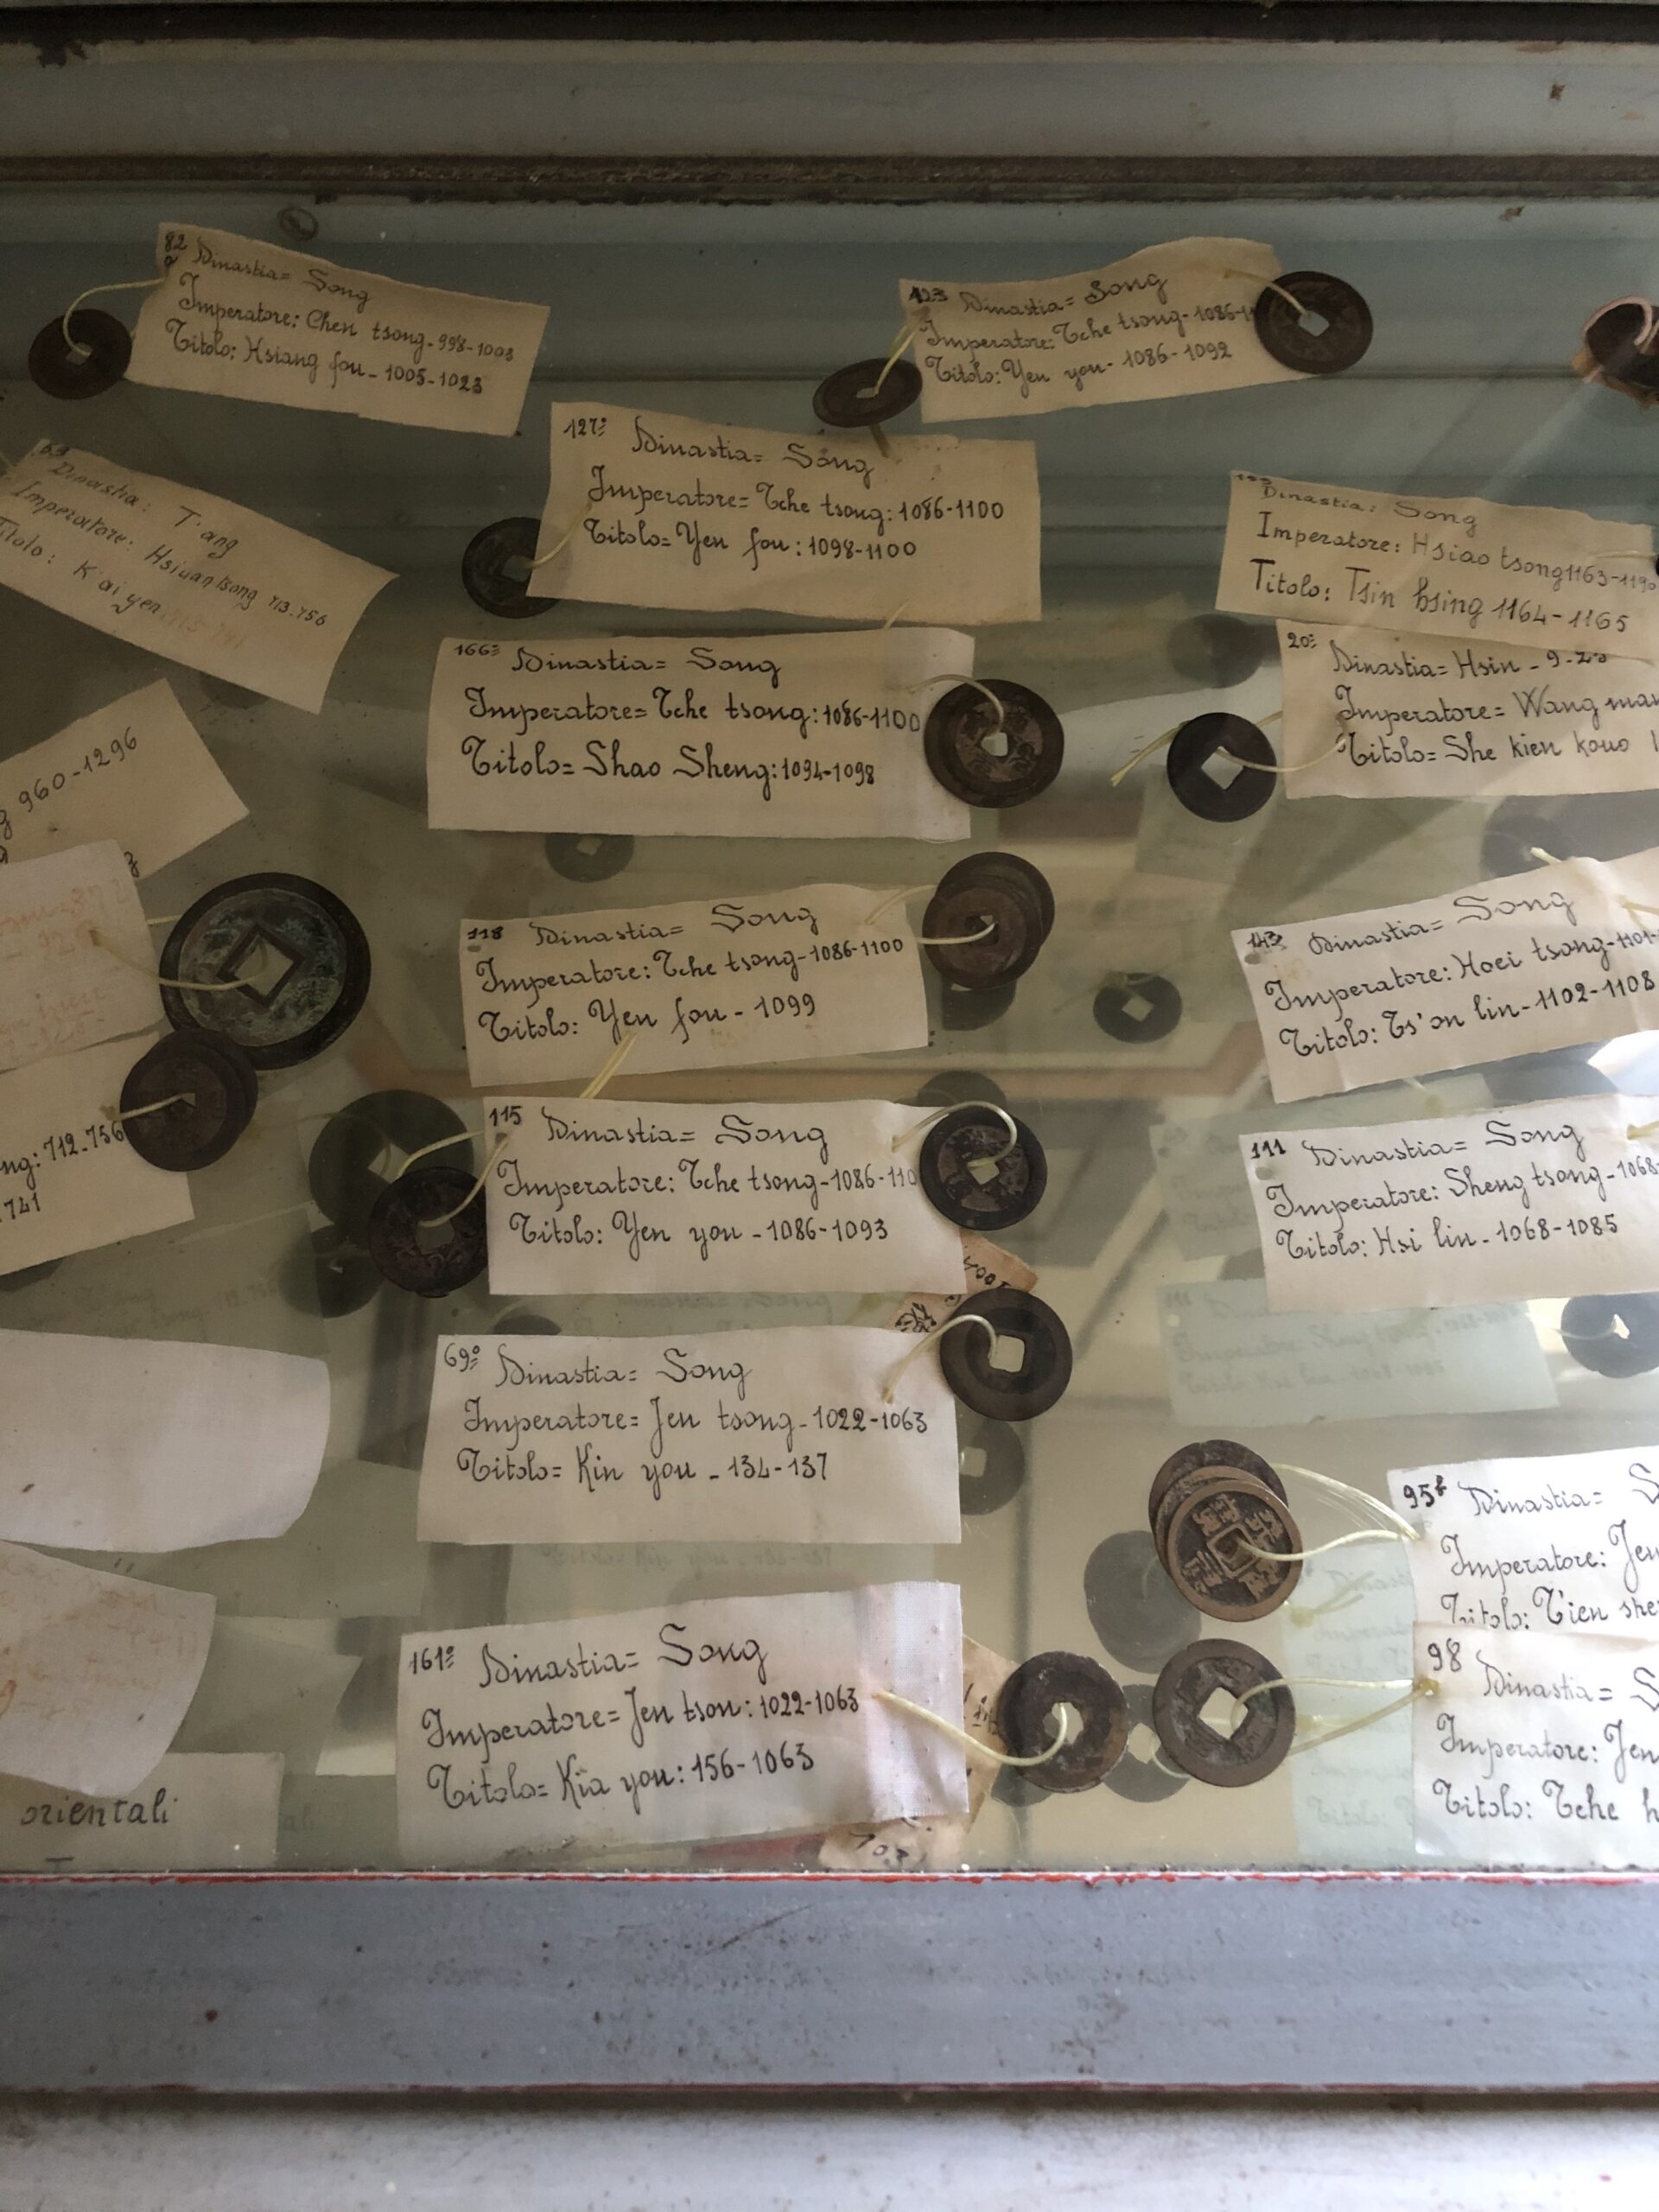 82
Dinastia= Song
Imperatore: Chen tsong-998-1003
Titolo: Hsiang fou-1005-1023
123
Dinastia= Song
Imperatore: Tche tsong-1086-11
Titolo: Yen you-1086-1092
127:
Dinastia= Song
Imperatore= Tche tsong: 1086-1100
Titolo= Yen fou: 1098-1100
69
Dinastia: T'ang
Imperatore: Hsiuan tsong 713-756
Titolo: K'ai yen
Dinastia: Song
Imperatore: Hsiao tsong 1163-1190
Titolo: Tsin hsing 1164-1165
166=
Dinastia= Song
Imperatore= Tche tsong: 1086-1100
Titolo= Shao Sheng: 1094-1098
20=
Dinastia= Hsin - 9-23
Imperatore= Wang man
Titolo= She kien kouo 1
960-1296
118
Dinastia= Song
Imperatore: Tche tsong-1086-1100
Titolo: Yen fou-1099
143
Dinastia= Song
Imperatore: Hoei tsong-1101-
Titolo: Ts'on lin-1102-1108
ng: 712-756
741
115
Dinastia= Song
Imperatore: Tche tsong-1086-110
Titolo: Yen you-1086-1093
111
Dinastia= Song
Imperatore: Sheng tsong-1068-
Titolo: Hsi lin-1068-1085
69º
Dinastia= Song
Imperatore= Jen tsong-1022-1063
Titolo= Kin you-134-137
95
Dinastia= S
Imperatore: Jen
Titolo: T'ien she
161º
Dinastia= Song
Imperatore= Jen tson: 1022-1063
Titolo= Kia you: 156-1063
98
Dinastia= S
Imperatore: Jen
Titolo: Tche h
orientali